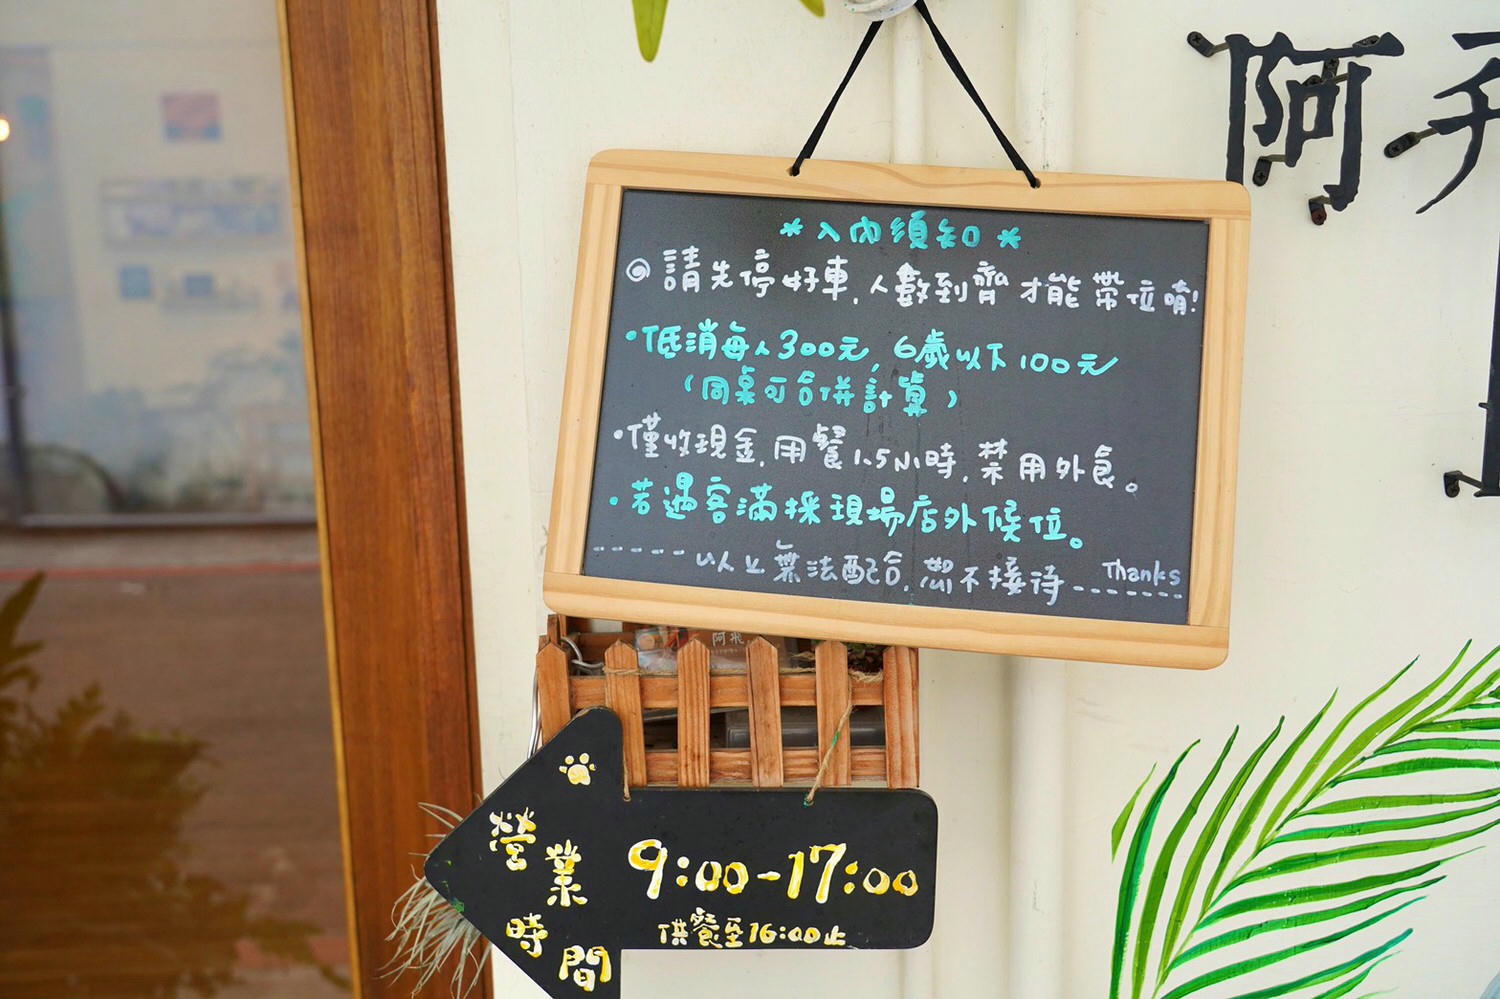 *入內須知*
請先停好車,人數到齊才能帶位唷!
•低消每人300元,6歲以下100元
(同桌可合併計算)
•僅收現金,用餐1.5小時,禁用外食。
•若遇客滿採現場店外候位。
-----以上無法配合,恕不接待------- Thanks
阿飛
營業時間
9:00-17:00
供餐至16:00止
阿